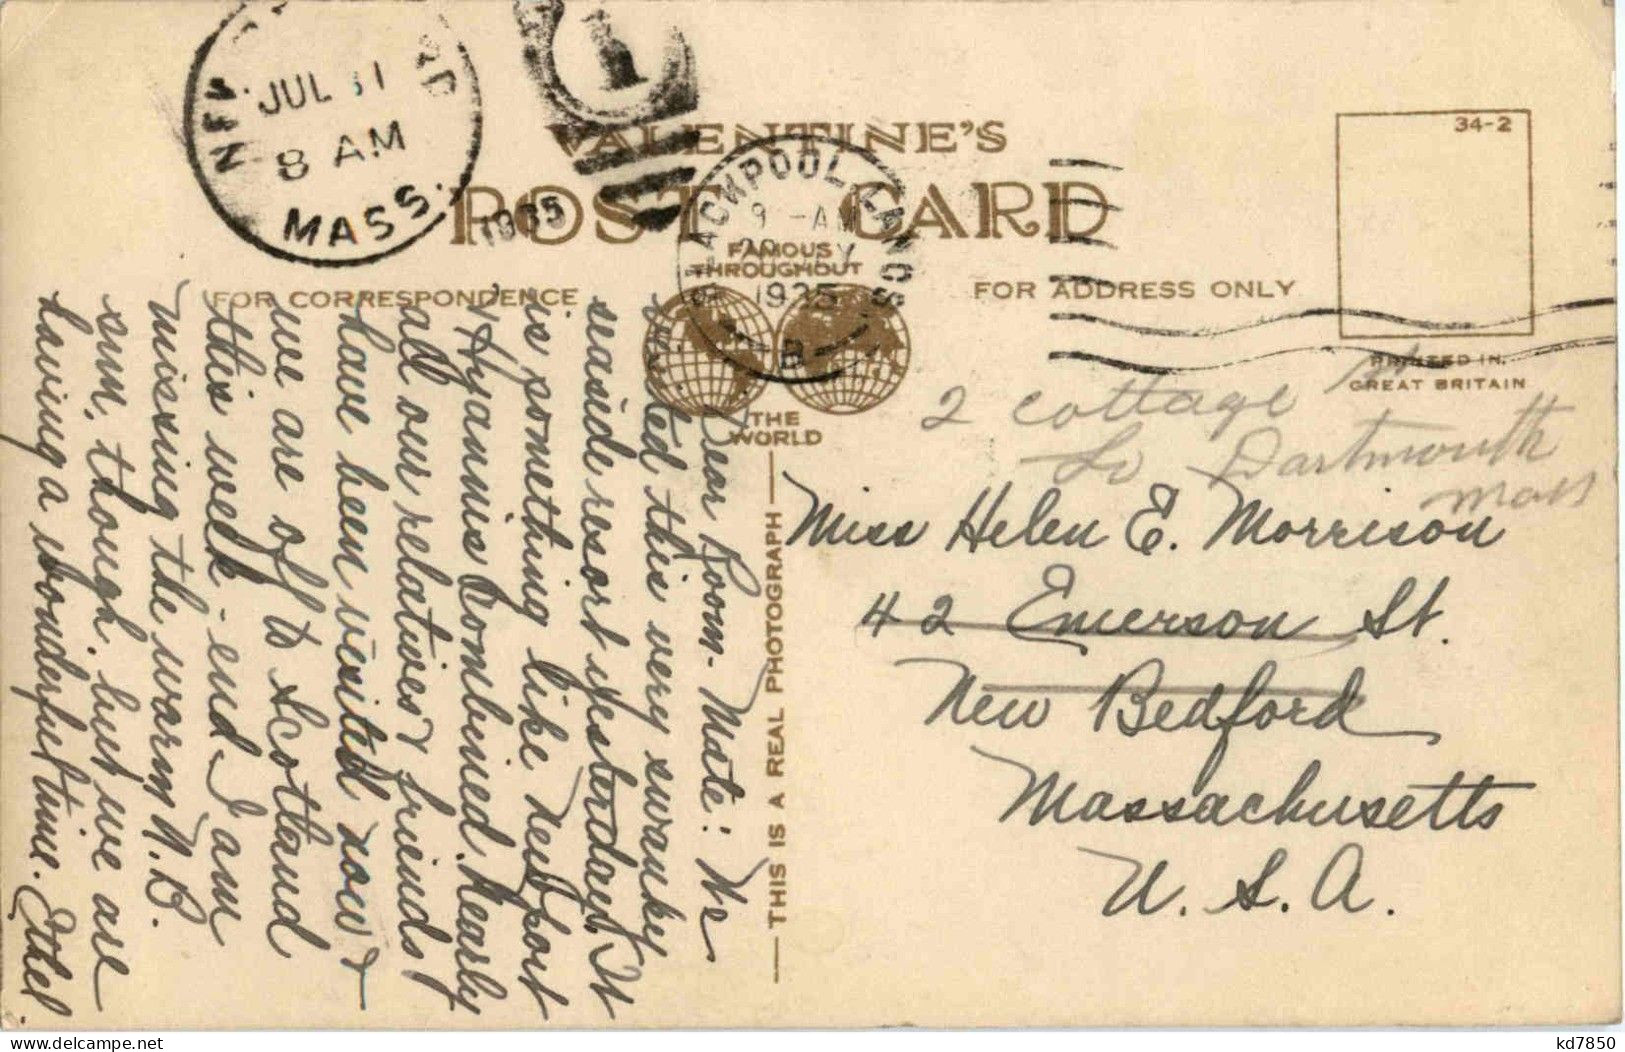 JUL 31
8 AM
MASS.
1935
1
VALENTINE'S
POST CARD
FAMOUS
THROUGHOUT
THE
WORLD
BLACKPOOL. LANCS
9 - AM
1935
B
34-2
PRINTED IN
GREAT BRITAIN
FOR CORRESPONDENCE
FOR ADDRESS ONLY
THIS IS A REAL PHOTOGRAPH
Dear Room-Mate: We
visited this very swanky
seaside resort yesterday. It
is something like Newport
& Hyannis combined. Nearly
all our relatives & friends
have been visited now &
we are off to Scotland
this week-end. I am
missing the warm N.B.
sun, though, but we are
having a wonderful time. Ethel.
2 cottage
So Dartmouth
Mass
Miss Helen E. Morrison
42 Emerson St.
New Bedford
Massachusetts
U.S.A.
kd7850